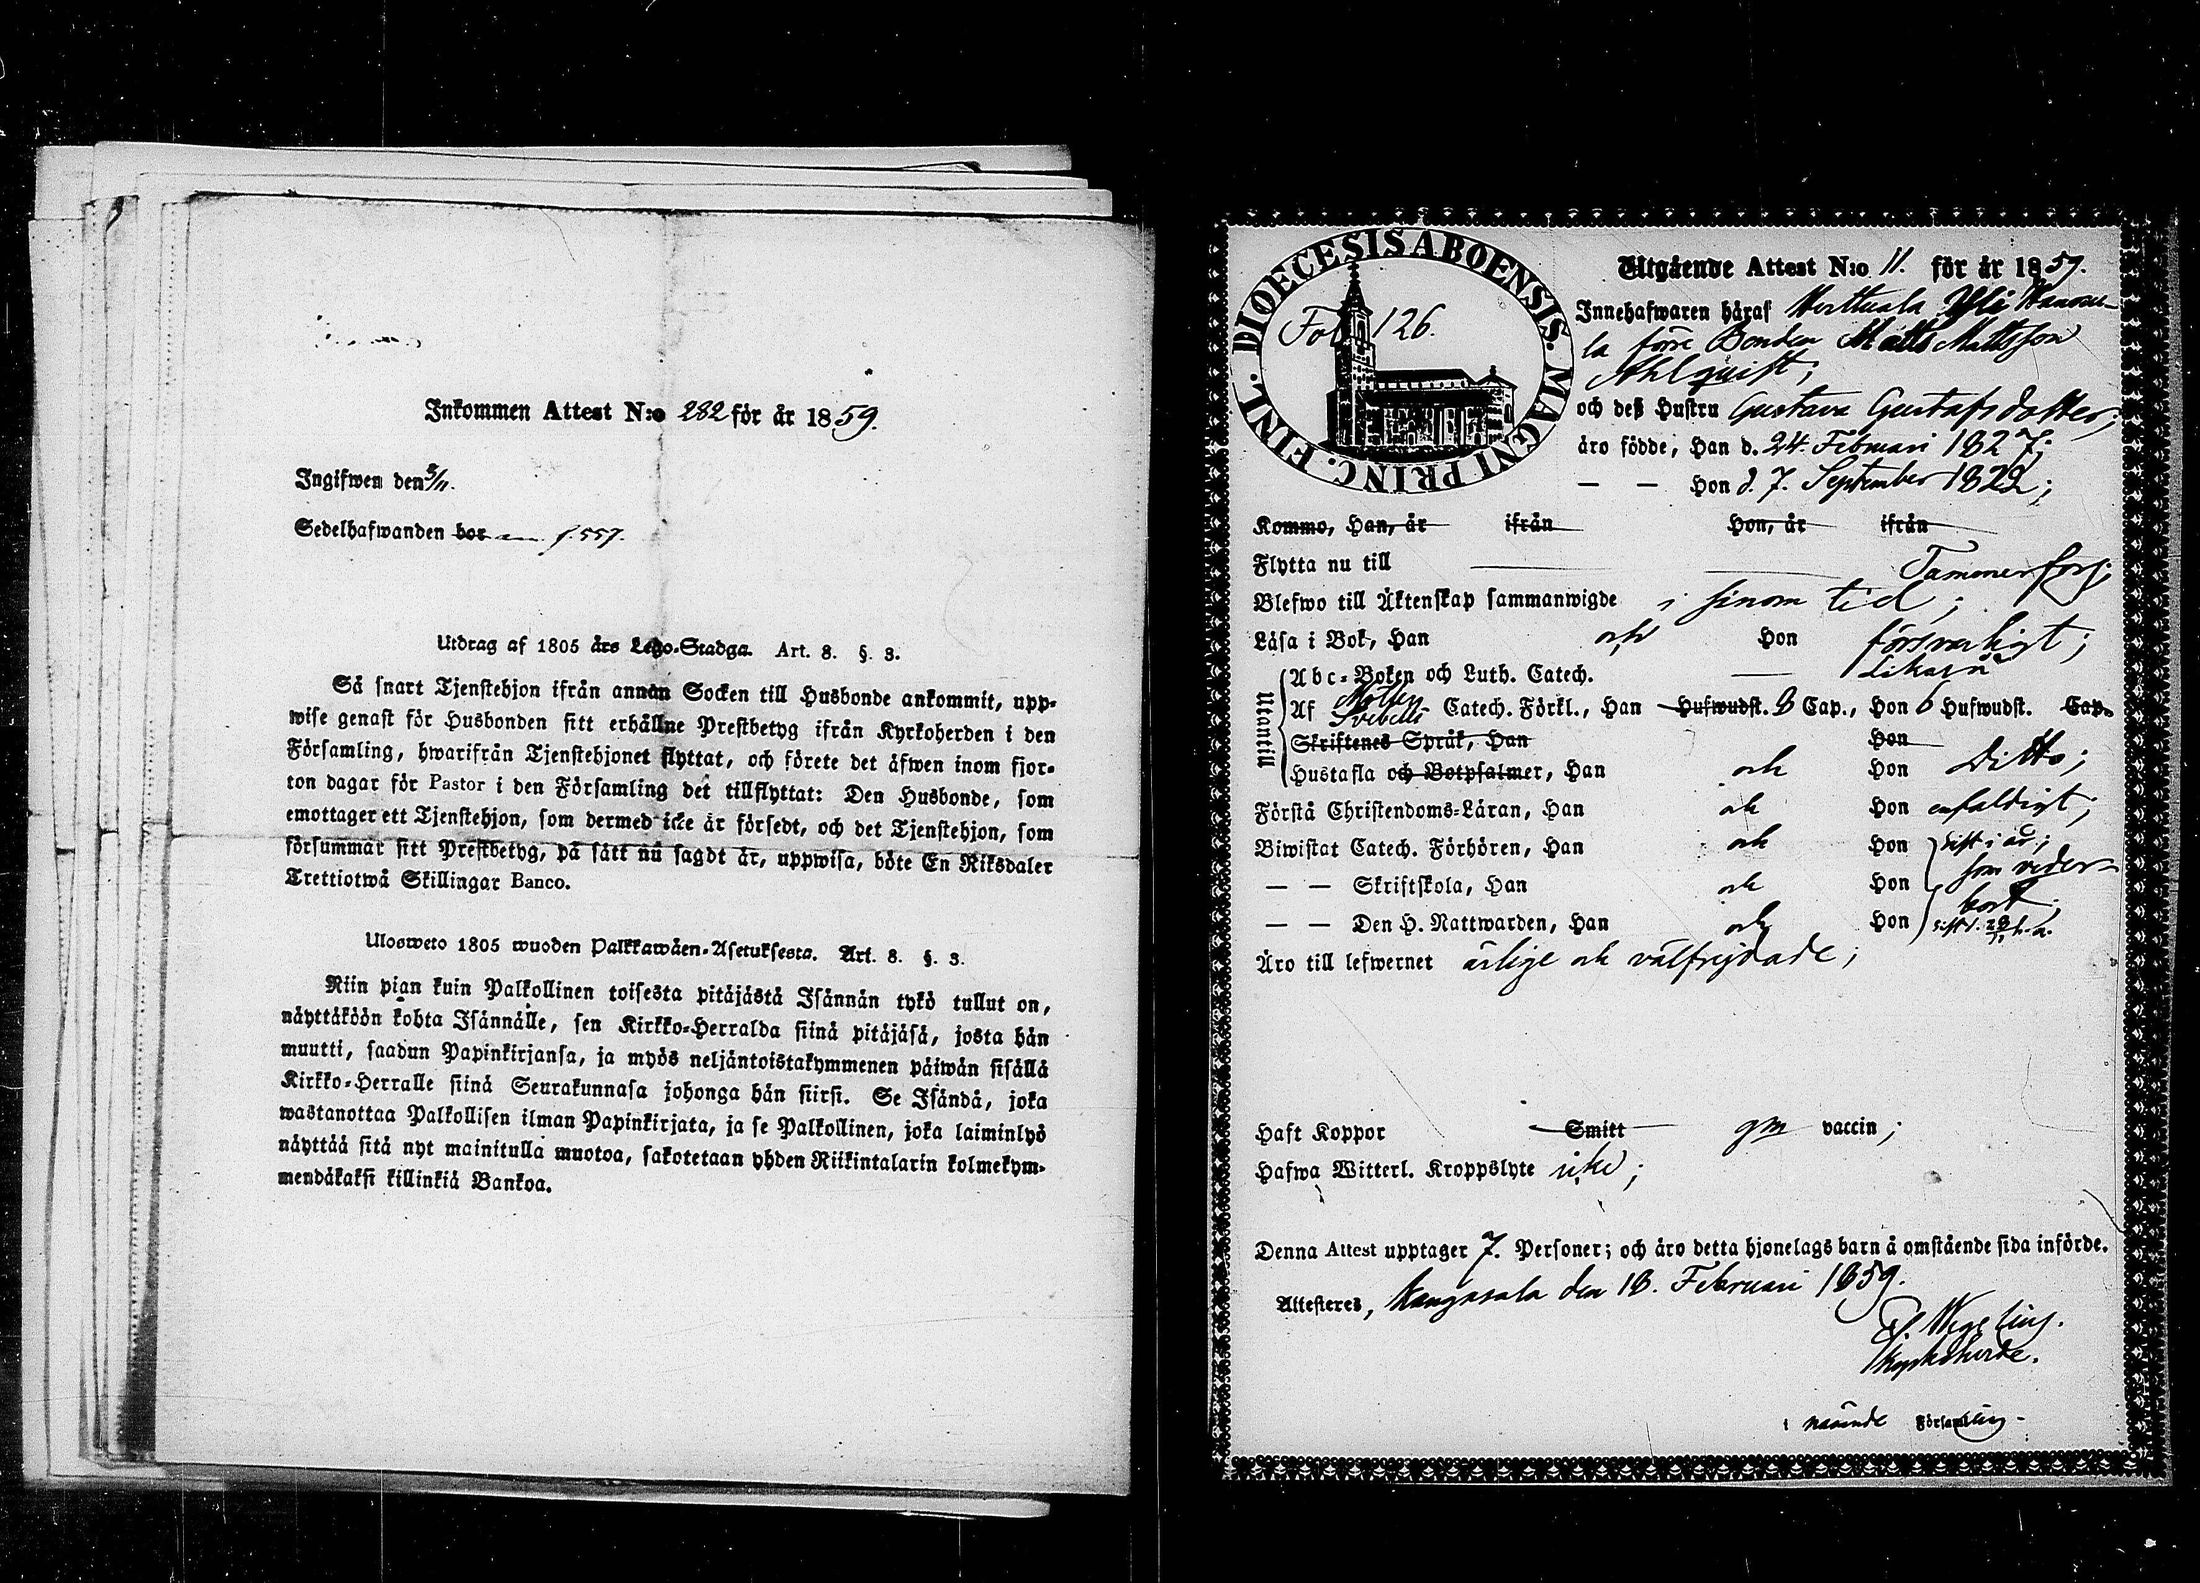 Inkommen Attest N:o 282 för år 1859.
Ingifwen den 3/11.
Sedelhafwanden bor f. 557.
Utdrag af 1805 års Lego-Stadga. Art. 8. §. 3.
Så snart Tjenstehjon ifrån annan Socken till Husbonde ankommit, upp-
wise genast för Husbonden sitt erhållne Prestbetyg ifrån Kyrkoherden i den
Församling, hwarifrån Tjenstehjonet flyttat, och förete det äfwen inom fjor-
ton dagar för Pastor i den Församling det tillflyttat: Den Husbonde, som
emottager ett Tjenstehjon, som dermed icke är försedt, och det Tjenstehjon, som
försummar sitt Prestbetyg, på sätt nu sagdt är, uppwisa, böte En Riksdaler
Trettiotwå Skillingar Banco.
Ulosweto 1805 wuoden Palkkawäen-Asetuksesta. Art. 8. §. 3.
Niin pian kuin Palkollinen toisesta pitäjästä Isännän tykö tullut on,
näyttäköön kohta Isännälle, sen Kirkko-Herralda siinä pitäjäsä, josta hän
muutti, saadun Papinkirjansa, ja myös neljäntoistakymmenen päiwän sisällä
Kirkko-Herralle siinä Seurakunnasa johonga hän siirsi. Se Isändä, joka
wastanottaa Palkollisen ilman Papinkirjata, ja se Palkollinen, joka laiminlyö
näyttää sitä nyt mainitulla muotoa, sakotetaan yhden Riikintalarin kolmekym-
mendäkaksi killinkiä Bankoa.
DIOECESIS ABOENSIS. MAGNI PRINC. FINL.
Fol 126.
Utgående Attest N:o 11. för år 1859.
Innehafwaren häraf Herttuala Yli
la förre Bonden Matts Mattsson
Ahlqvist;
och deß Hustru Gustava Gustafsdotter;
äro födde, Han d. 24. Februari 1827;
— — Hon d. 7. September 1822;
Kommo, Han, år ifrån Hon, år ifrån
Flytta nu till Tammerfors;
Blefwo till Äktenskap sammanwigde i sinom tid;
Läsa i Bok, Han och Hon försvarligt;
Utantill
Abc-Boken och Luth. Catech. — likaså
Af Svebelii Catech. Förkl., Han Hufwudst. 8 Cap., Hon 6 Hufwudst. Cap.
Skriftenes Språk, Han Hon
Hustafla och Botpsalmer, Han och Hon Ditto;
Förstå Christendoms-Läran, Han och Hon enfaldigt;
Biwistat Catech. Förhören, Han och Hon sist i år;
— — Skriftskola, Han och Hon som veder-
bort;
— — Den H. Nattwarden, Han och Hon sist
Äro till lefwernet ärlige och välfrejdade;
Haft Koppor Smitt gm vaccin;
Hafwa Witterl. Kroppslyte icke;
Denna Attest upptager 7. Personer; och äro detta hjonelags barn å omstående sida införde.
Attesteres, Kangasala den 18. Februari 1859.
Wegelius.
Kyrkoherde.
i nämnde Församling.